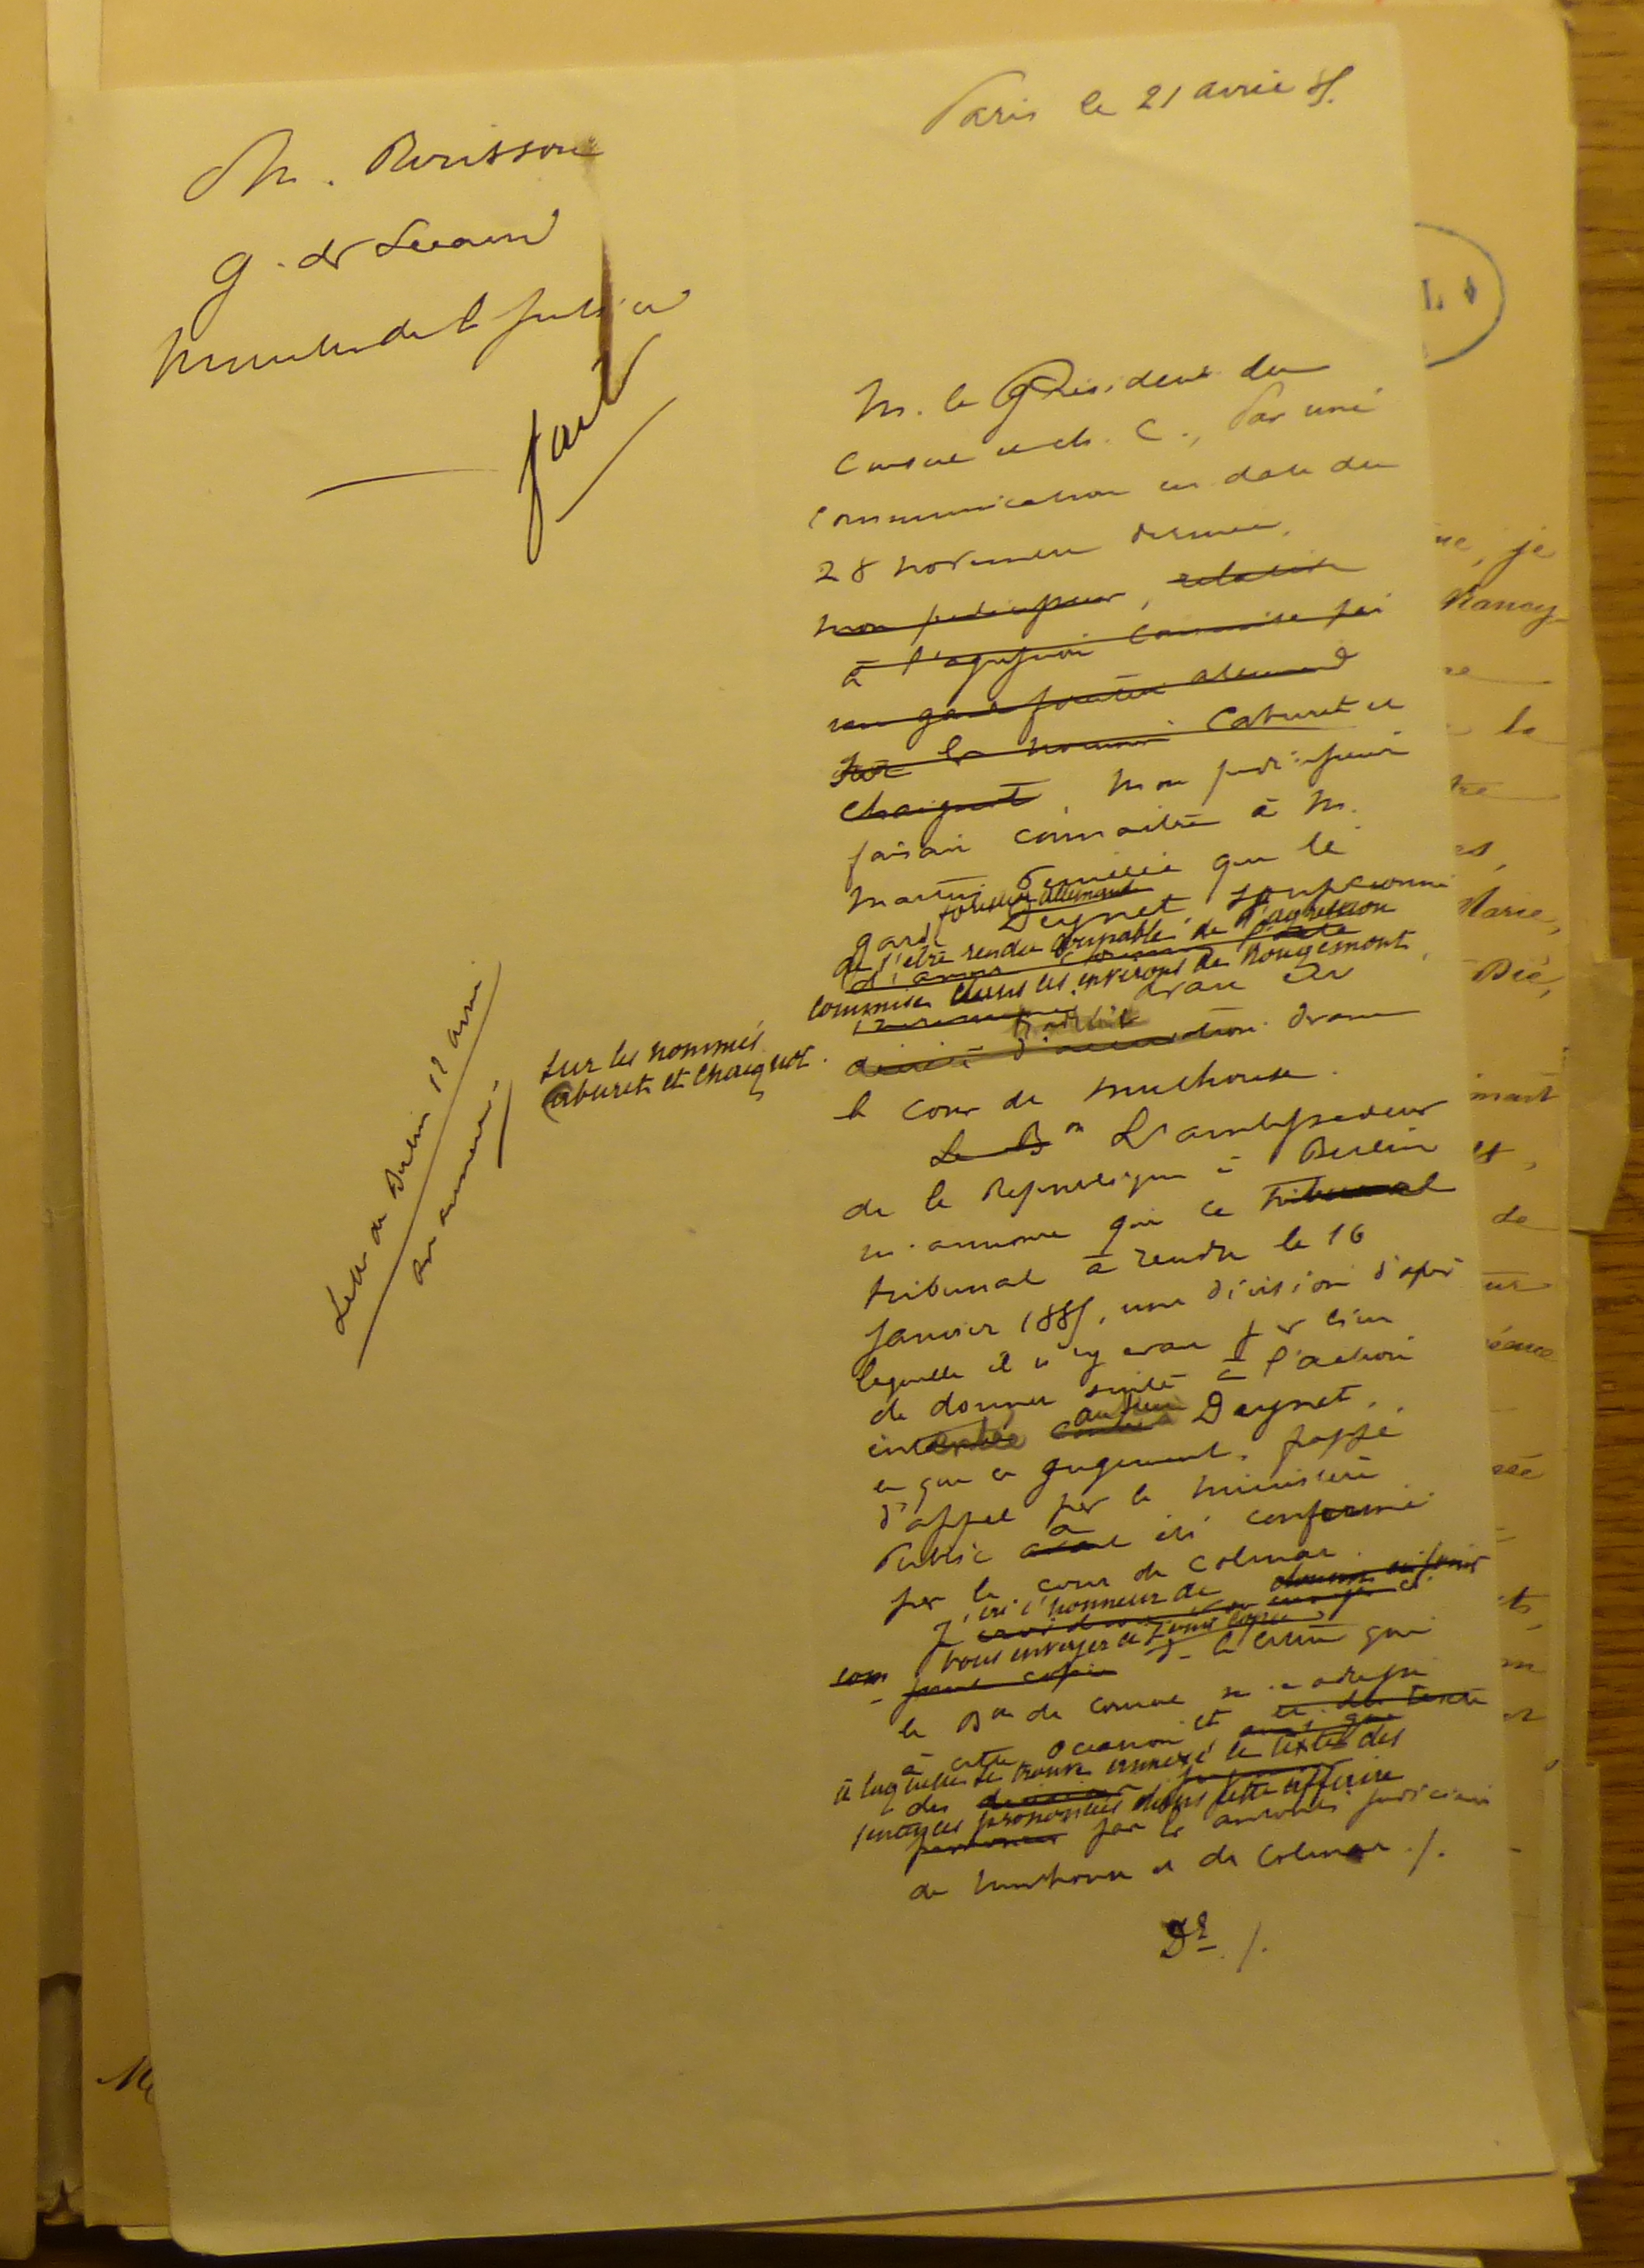 Paris le 21 avril 85.
M. Brisson
G. des Sceaux
Ministre de la Justice
fait
M. le Président du
Conseil et ch. C., Par une
communication en date du
28 novembre dernier,
mon prédécesseur, relative
à l'agression commise par
un garde forestier allemand
sur les nommés Caburet et
Chaignot, mon prédécesseur
faisait connaître à M.
Martin Feuillée que le
forestier allemand
garde Deynet, soupçonné
de s'être rendu coupable de l'agression
d'avoir
commise dans les environs de Rougemont,
sur les nommés
Caburet et Chaignot
traduit
décrété d'accusation devant
la Cour de Mulhouse.
Le Bon L'ambassadeur
de la République à Berlin
m'annonce que ce tribunal
tribunal a rendu le 16
Janvier 1885, une décision d'après
laquelle il n'y avait pas lieu
de donner suite à l'action
intentée contre Deynet,
et que ce jugement, frappé
d'appel par le ministère
Public a été confirmé
par la cour de Colmar.
J'ai l'honneur de
vous envoyer ci-joint copie
joint copie de la lettre que
le Bon de Courcel m'a adressée
à cette occasion et
à laquelle se trouve annexé le texte des
des décisions
sentences prononcées dans cette affaire
par les autorités judiciaires
de Mulhouse et de Colmar ./.
Lettre de Berlin 12 avril
en annexe
ne, je
Nancy
la
Marie,
Dié,
de